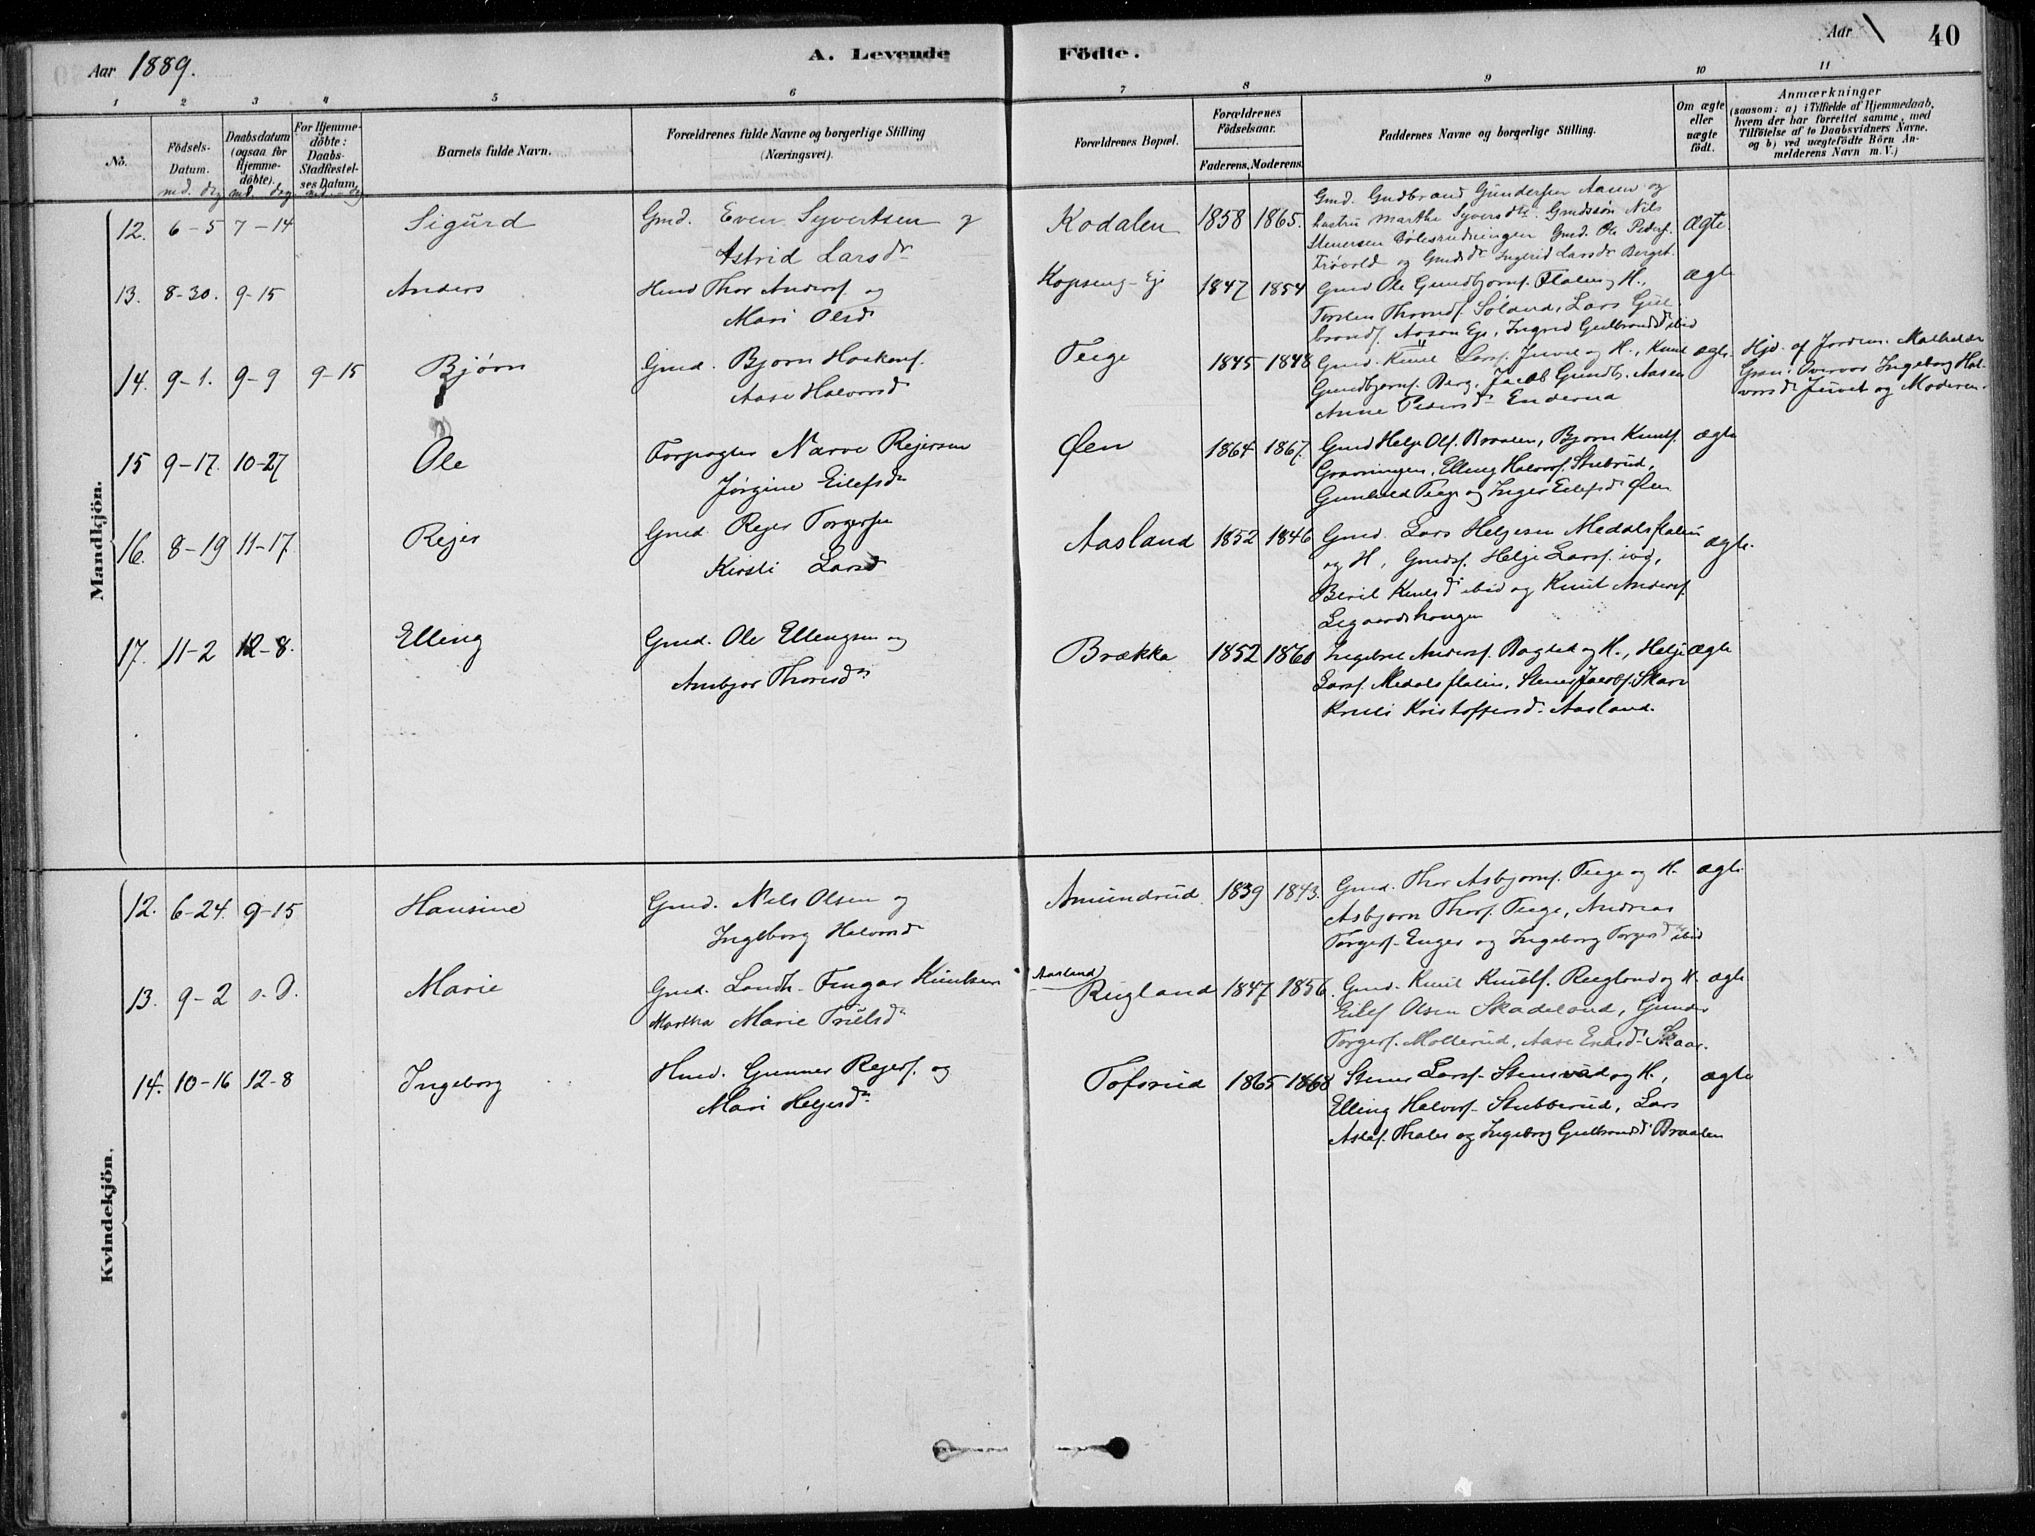 Aar 1889.
A. Levende Födte.
Aar
40
1 2 3 4 5 6 7 8 9 10 11
No.
Födsels-Datum.
Daabsdatum (ogsaa for Hjemme-döbte).
For Hjemme-döbte: Daabs-Stadfæstel-ses Datum.
Barnets fulde Navn.
Forældrenes fulde Navne og borgerlige Stilling (Næringsvei).
Forældrenes Bopæl.
Forældrenes Födselsaar.
Faderens. Moderens.
Faddernes Navne og borgerlige Stilling.
Om ægte eller uægte födt.
Anmærkninger (saasom: a) i Tilfælde af Hjemmedaab, hvem der har forrettet samme, med Tilföielse af to Daabsvidners Navne. og b) ved uægtefödte Börn An-melderens Navn m. V.)
md. dg md. dg md. dg
Mandkjön.
12. 6-5 7-14 Sigurd Gmd. Even Syvertsen og
Astrid Larsdr
Kodalen 1858 1865.
Gmd. Gudbrand Gundersen Aasen og
hustru Marthe Syversdtr. Gmdssøn Nils
Stenersen Bölesrudningen Gmd. Ole Peders.
Trövold og Gmdsdr Ingbrid Larsdr Berget.
ægte
13. 8-30. 9-15 Anders Hmd Thor Anders. og
Mari Olsdr
Kopseng-Eje 1847 1854
Gmd Ole Gundbjorns. Flaten og H.,
Torsten Thords. Sölerud, Lars Gul
brands. Aasen Eje, Ingrid Gulbrandsdr ibid
ægte
14. 9-1. 9-9 9-15 Bjørn Gmd. Bjorn Haakens.
Aase Halvorsdr
Teige 1845 1848
Gmd. Knut Lars. Juvet og H., Knut
Gundbjorns. Berg, Jacob Gundb. Aasen
Anne Pedersdr Enderud
ægte
Hjd. af Jordm. Mathilde
Gran. Overvær Ingeborg Hal-
vorsdr Juvet og Moderen.
15 9-17. 10-27 Ole Forpagter Narve Rejersen
Jörgine Eilefsdr
Øen 1864 1867.
Gmd Helje Ols. Braaten, Bjorn Knuts.
Gravningen, Elling Halvors. Stubrud,
Gunhild Teige og Inger Eilefsdr Øen
ægte
16. 8-19 11-17. Rejer Gmd. Rejer Torgersen
Kirsti Larsdr
Aasland 1852 1846
Gmd. Lars Helgesen Medalsflatin
og H, Gmds. Helje Lars. ibd,
Beril Knutsdr ibid og Knut Anders.
Legaardshaugen
ægte.
17. 11-2 12-8. Elling Gmd. Ole Ellingsen og
Ambjor Thoresdr
Brækka 1852 1860
Ingebret Anders. Bagled og H., Helje
Lars. Medalsflatin, Stener Jacobs. Skare
Kruli Kristoffersdr. Aasland.
ægte
Kvindekjön.
12. 6-24. 9-15 Hansine Gmd. Nils Olsen og
Ingeborg Halvorsdr
Amundrud 1839 1843.
Gmd. Thor Asbjorns. Teige og H.
Asbjorn Thors. Teige, Andreas
Torgers. Enger og Ingeborg Torgersdr ibid
ægte
13. 9-2 s. D. Marie Gmd. Landh. Fingar Knutsen
Martha Marie Trulsdr
(Aasland)
Rugland 1847 1856.
Gmd. Knut Knuts. Rugland og H.
Eilef Olsen Skadeland, Gunder
Torgers. Mollerud, Aase Eriksdr Skaar.
ægte
14. 10-16 12-8 Ingeborg Hmd. Gunner Rejers. og
Mari Heljesdr
Tofsrud 1865 1868
Stener Lars. Stensrud og H.,
Elling Halvors. Stubberud, Lars
Aslef. Tholes og Ingeborg Gulbrandsdr Braaten
ægte